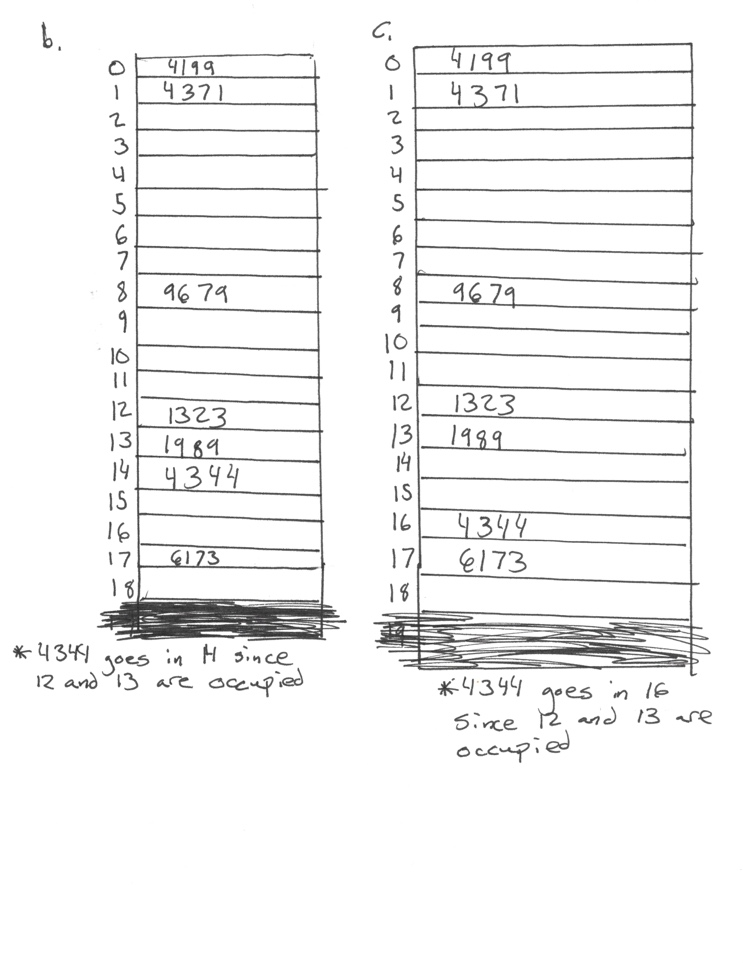 b.
0 4199
1 4371
2
3
4
5
6
7
8 9679
9
10
11
12 1323
13 1989
14 4344
15
16
17 6173
18
*4344 goes in 14 since
12 and 13 are occupied
c.
0 4199
1 4371
2
3
4
5
6
7
8 9679
9
10
11
12 1323
13 1989
14
15
16 4344
17 6173
18
*4344 goes in 16
since 12 and 13 are
occupied